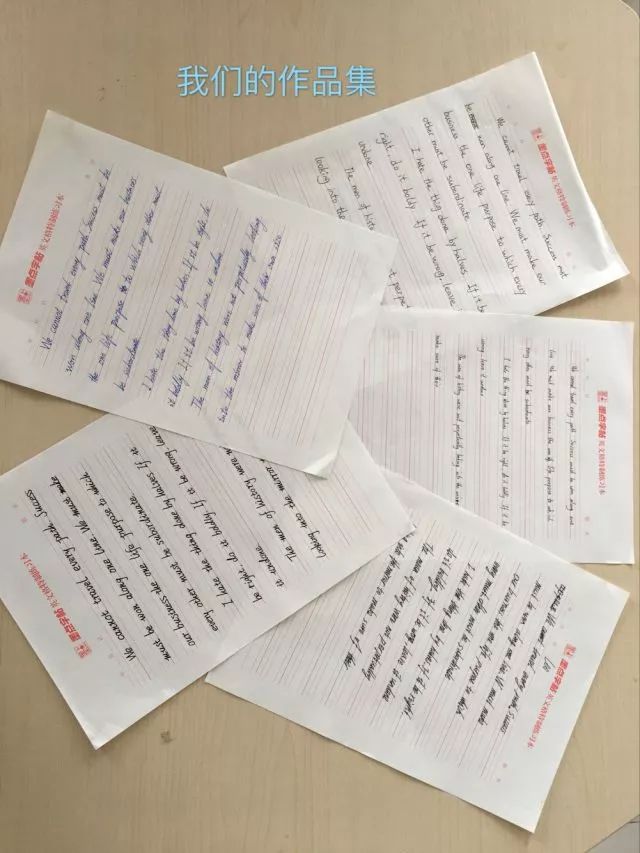 我们的作品集
墨点字帖 英文格特制练习本
We cannot travel every path. Success must be
won along one line. We must make our business
the one life purpose to to which every other must
be subordinate.
I hate the thing done by halves. If it be right, do
it boldly. If it be wrong leave it undone.
The men of history were not perpetually looking
into the mirror to make sure of their own size.
墨点字帖 英文格特制练习本
We cannot travel every path. Success must
be won along one line. We must make our
business the one life purpose to which every
other must be subordinate.
I hate the thing done by halves. If it be
right, do it boldly. If it be wrong, leave
undone.
The men of histo
looking into the
t perpet
墨点字帖 英文格特制练习本
We cannot travel every path. Success must be won along one
line. We must make our business the one life purpose to which
every other must be subordinate.
I hate the thing done by halves. If it be right, do it boldly. If it be
wrong, leave it undone.
The men of history were not perpetually looking into the mirror
make sure of their
墨点字帖 英文格特制练习本
We cannot travel every path. Success
must be won along one line. We must make
our business the one life purpose to which
every other must be subordinate.
I hate the thing done by halves. If it
be right, do it boldly. If it be wrong leave
it undone.
The men of history were n
looking into the mirror
墨点字帖 英文格特制练习本
We cannot travel every path. Success
must be won along one line. We must make
our business the one life purpose to which
every other must be subordinate
I hate the thing done by halves. If it be right,
do it boldly. If it be wrong leave it undone
The men of history were not perpetually
into the mirror to make sure of their